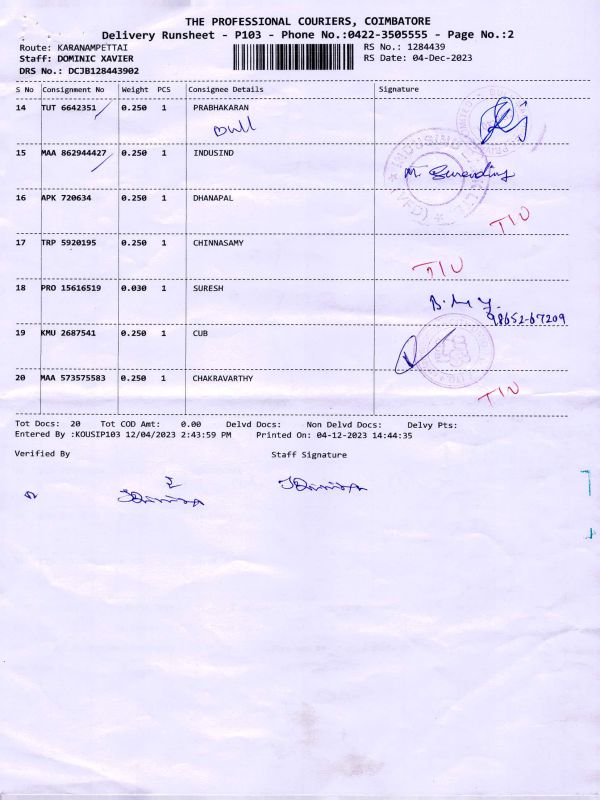 THE PROFESSIONAL COURIERS, COIMBATORE
Delivery Runsheet - P103 - Phone No.:0422-3505555 - Page No.:2
Route: KARANAMPETTAI RS No.: 1284439
Staff: DOMINIC XAVIER RS Date: 04-Dec-2023
DRS No.: DCJB128443902
S No Consignment No Weight PCS Consignee Details Signature
14 TUT 6642351 0.250 1 PRABHAKARAN
15 MAA 862944427 0.250 1 INDUSIND
16 APK 720634 0.250 1 DHANAPAL
TIU
17 TRP 5920195 0.250 1 CHINNASAMY
TIU
18 PRO 15616519 0.030 1 SURESH
98652-67209
19 KMU 2687541 0.250 1 CUB
20 MAA 573575583 0.250 1 CHAKRAVARTHY
TIU
Tot Docs: 20 Tot COD Amt: 0.00 Delvd Docs: Non Delvd Docs: Delvy Pts:
Entered By :KOUSIP103 12/04/2023 2:43:59 PM Printed On: 04-12-2023 14:44:35
Verified By Staff Signature